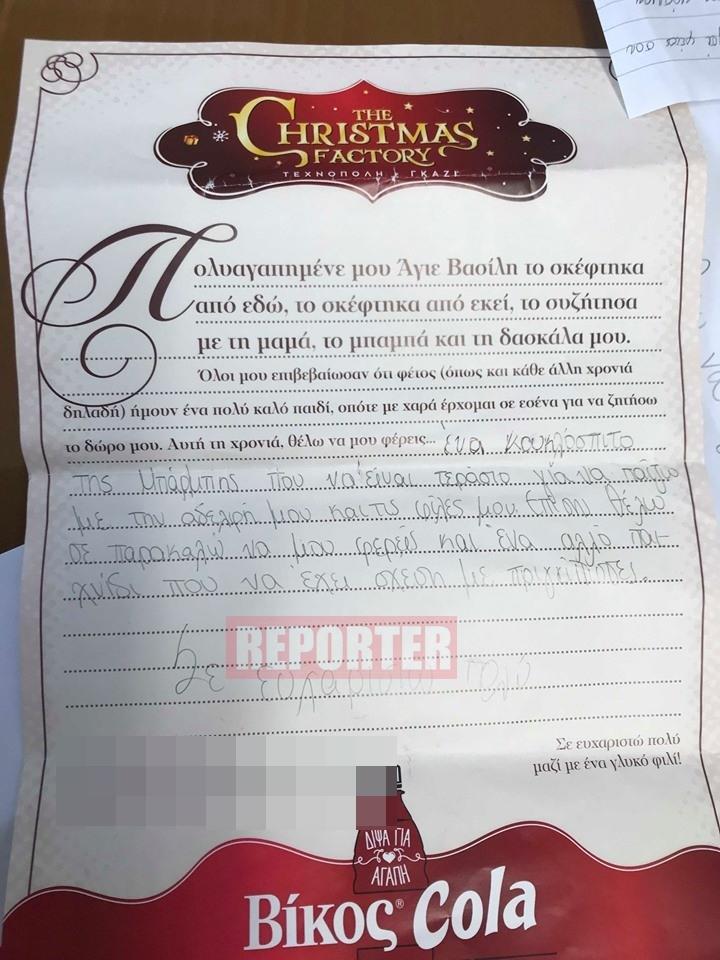 THE
CHRISTMAS
FACTORY
ΤΕΧΝΟΠΟΛΗ - ΓΚΑΖΙ
Πολυαγαπημένε μου Άγιε Βασίλη το σκέφτηκα
από εδώ, το σκέφτηκα από εκεί, το συζήτησα
με τη μαμά, το μπαμπά και τη δασκάλα μου.
Όλοι μου επιβεβαίωσαν ότι φέτος (όπως και κάθε άλλη χρονιά
δηλαδή) ήμουν ένα πολύ καλό παιδί, οπότε με χαρά έρχομαι σε εσένα για να ζητήσω
το δώρο μου. Αυτή τη χρονιά, θέλω να μου φέρεις... ένα κουκλόσπιτο
της Μπάρμπης που να είναι τεράστιο για να παίζω
με την αδελφή μου και τις φίλες μου. Επίσης θέλω
σε παρακαλώ να μου φέρεις και ένα άλλο παι-
χνίδι που να έχει σχέση με πριγκίπησες.
REPORTER
Σε ευχαριστώ πολύ
Σε ευχαριστώ πολύ
μαζί με ένα γλυκό φιλί!
ΔΙΨΑ ΓΙΑ
ΑΓΑΠΗ
Βίκος® Cola